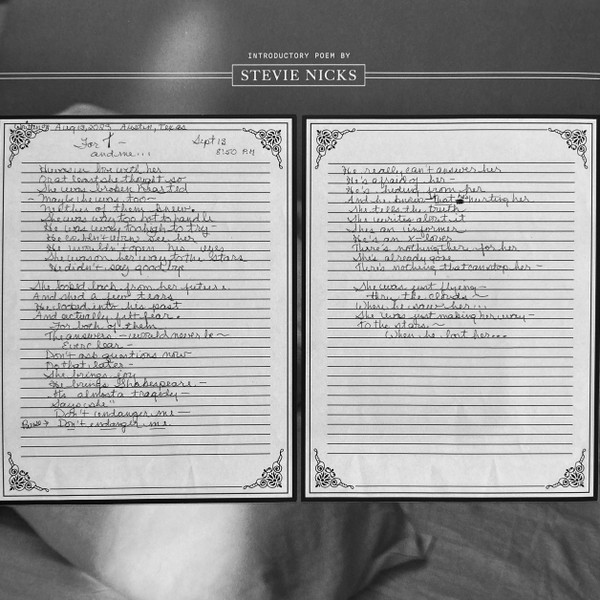 INTRODUCTORY POEM BY
STEVIE NICKS
Written Aug 13, 2023 Austin, Texas
For T –
and me...
Sept 12
8:50 P.M
He was in love with her
Or at least she thought so
She was broken hearted
– Maybe he was too –
Neither of them knew.
She was way too hot to handle
He was way too high to try –
He couldn't even see her
He wouldn't open his eyes
She was on her way to the stars
He didn't say goodbye
She looked back from her future
And shed a few tears
He looked into his past
And actually felt fear.
For both of them
The answers – would never be ~
Ever clear –
Don't ask questions now
Do that later –
She brings joy
He brings Shakespeare. –
It's almost a tragedy –
Says she"
Don't endanger me –
Don't endanger me.
He really can't answer her
He's afraid of her –
He's hiding from her
And he knows that he's hurting her
She tells the truth
She writes about it
She's an informer
He's an x-lover
There's nothing there for her
She's already gone
There's nothing that can stop her –
She was just flying –
Thru the clouds ~
When he saw her...
She was just making her way –
to the stars ~
When he lost her...